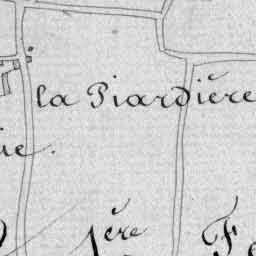 la Piardière
ie.
1ère Fe